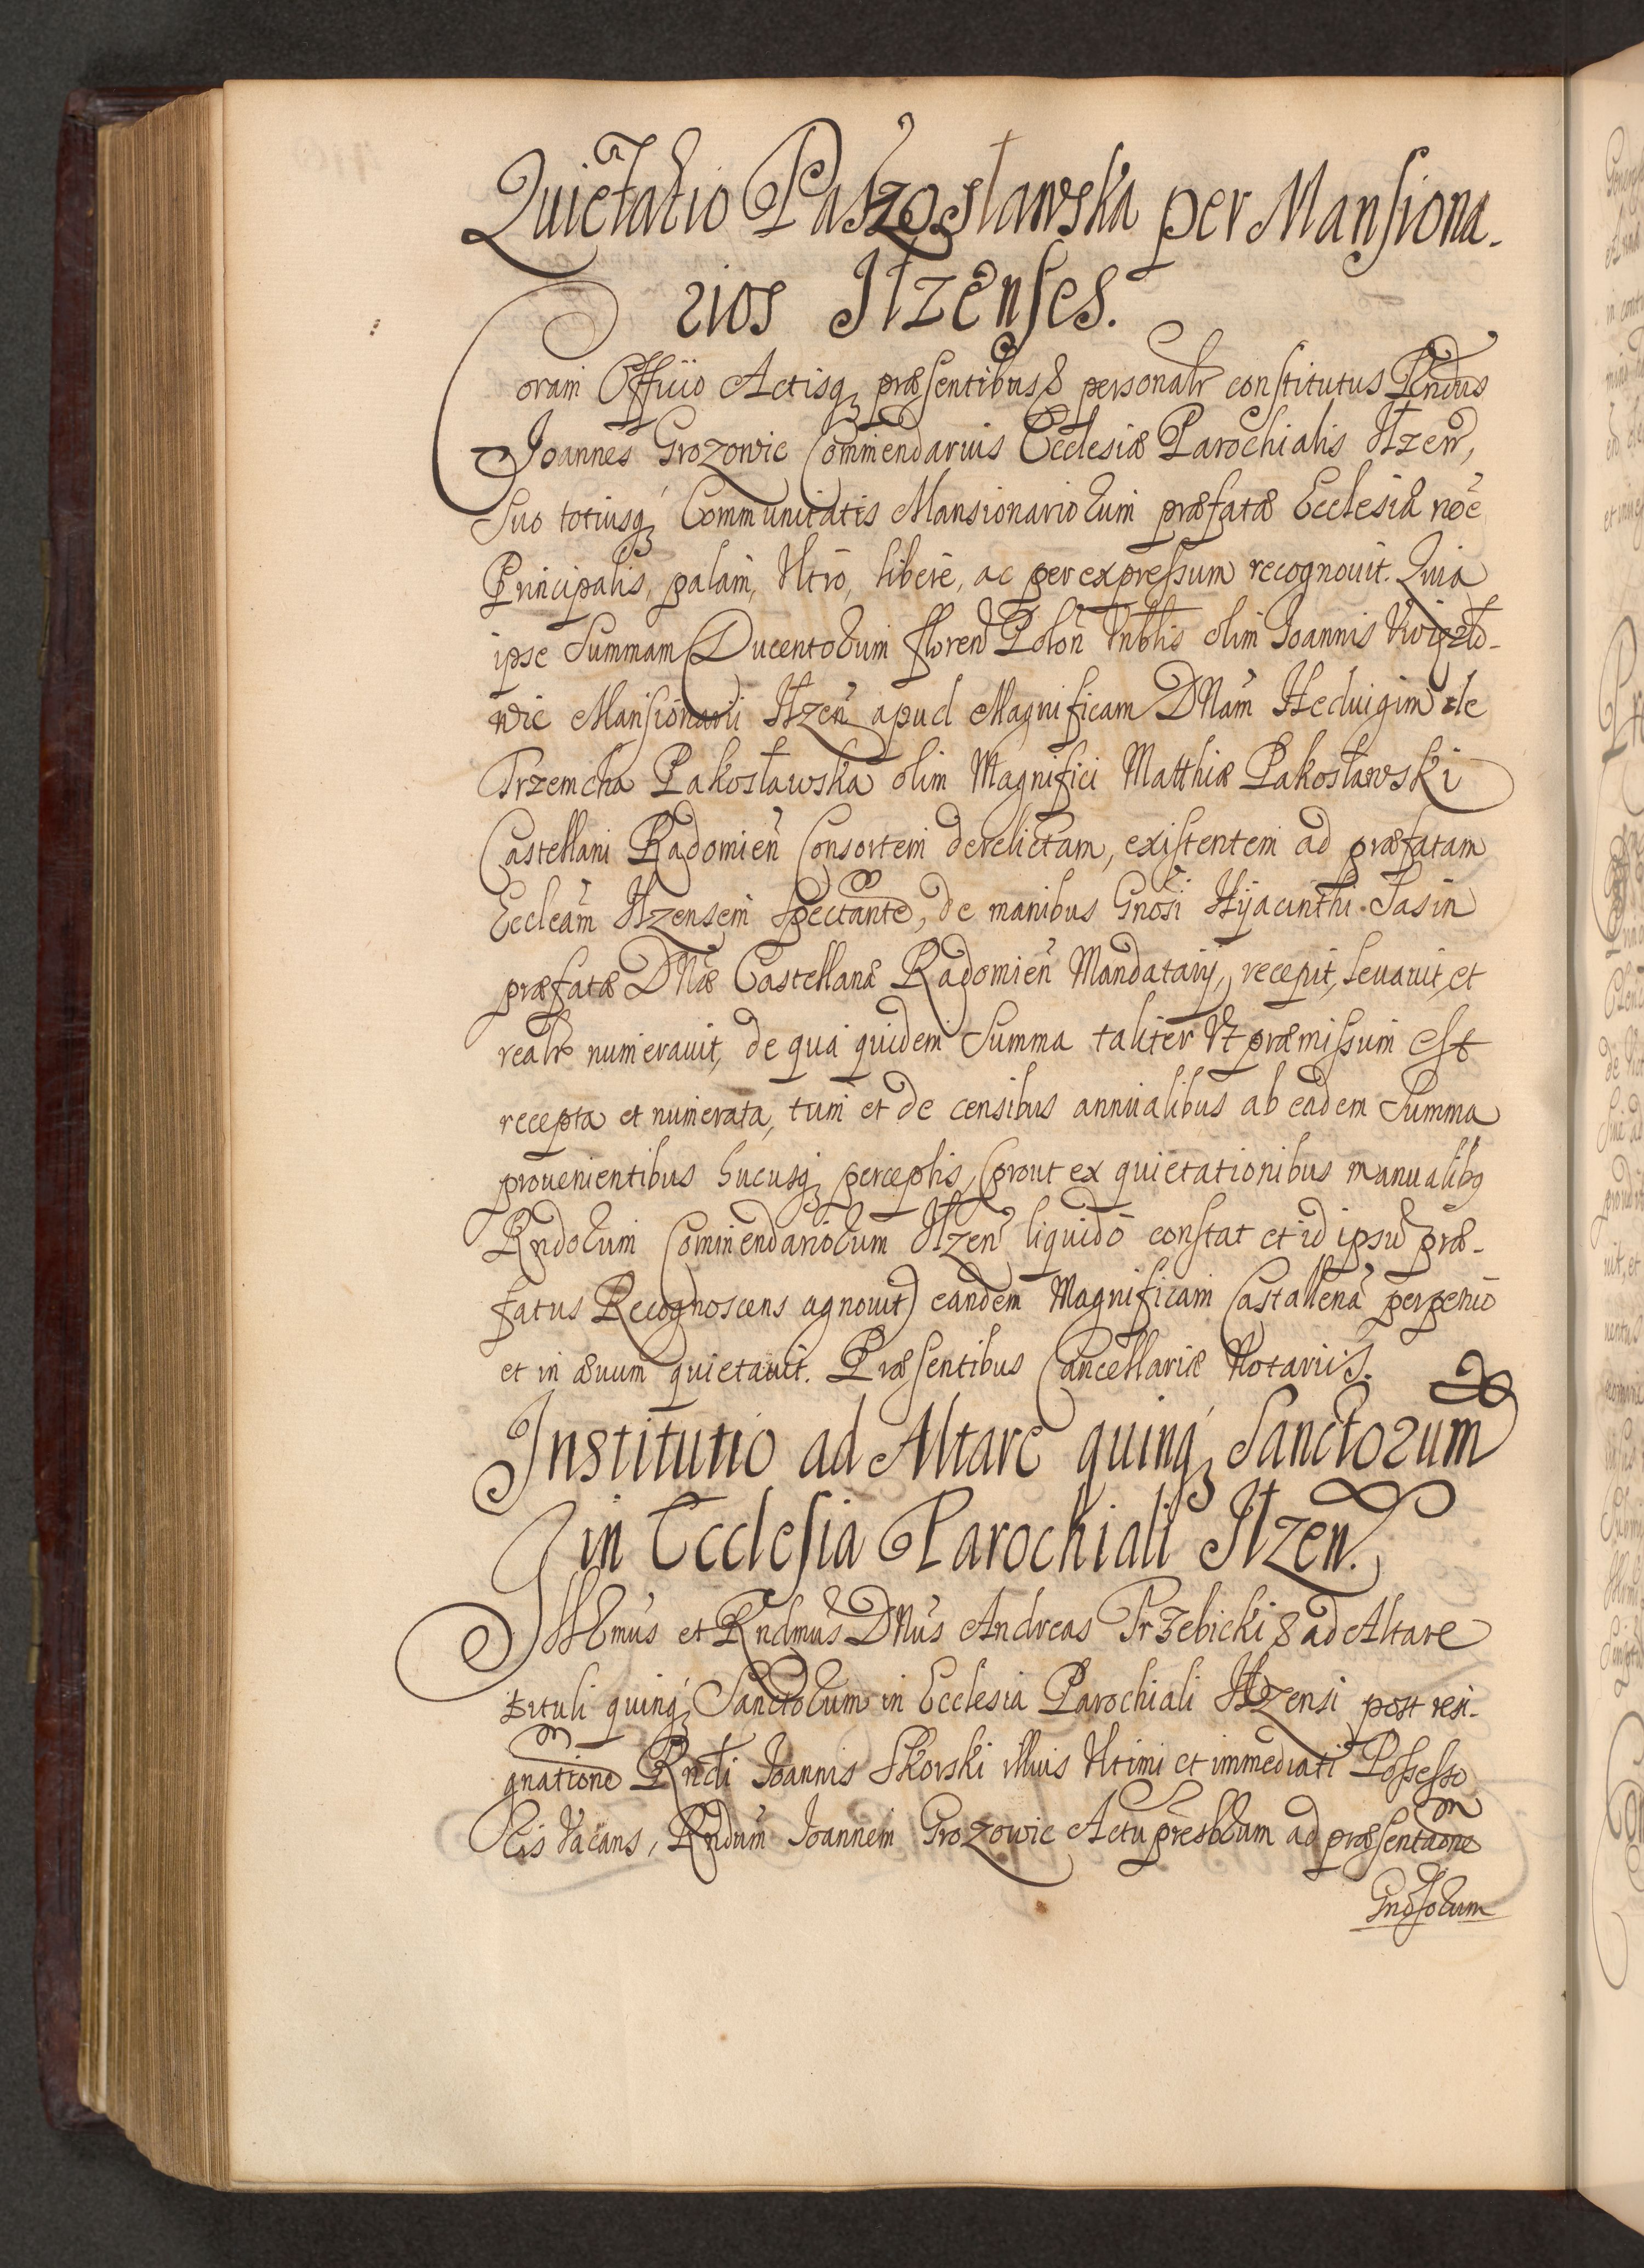 Quietatio Paszosławska per Mansiona-
rios Iłzenses.
Coram Officio Actisq, præsentibus & personalr constitutus Rndus
Joannes Grozowic Commendarius Ecclesiæ Parochialis Iłzen,
Suo totiusq, Communitatis Mansionariorum præfatæ Ecclesiæ noe
Principalis, palam, Vltro, libere, ac per expressum recognouit. Quia
ipse Summam Ducentorum floren Polon olim Joannis
wic Mansionarii Iłzen apud Magnificam DNam Heduigim de
Trzemcha Pakosławska olim Magnifici Matthiæ Pakosławski
Castellani Radomien Consortem derelictam, existentem ad præfatam
Eccleam Iłzensem Spectante, de manibus Gnosi Hijacinthi Jasin
præfatæ DNæ Castellanæ Radomien Mandatarij, recepit, leuauit, et
realr numerauit, de qua quidem Summa taliter Vt præmissum est
recepta et numerata, tum et de censibus annualibus ab eadem Summa
prouenientibus hucusq, perceptis, (prout ex quietationibus manualibq
Rndorum Commendariorum Iłzen liquido constat et id ipsu præ-
fatus Recognoscens agnouit) eandem Magnificam Castallena perpetuo
et in æuum quietauit. Præsentibus Cancellariæ Notariis.
Institutio ad Altare quinq, Sanctorum
in Ecclesia Parochiali Iłzen.
Illmus et Rndmus DNus Andreas Trzebicki & ad Altare
tituli quinq, Sanctorum in Ecclesia Parochiali Iłzensi post resi-
gnatione Rndi Joannis Skorski illius Vltimi et immediati Possesso
ris Vacans, Rndum Joannem Grozowic Actu presbrum ad præsentaone
Gnosorum